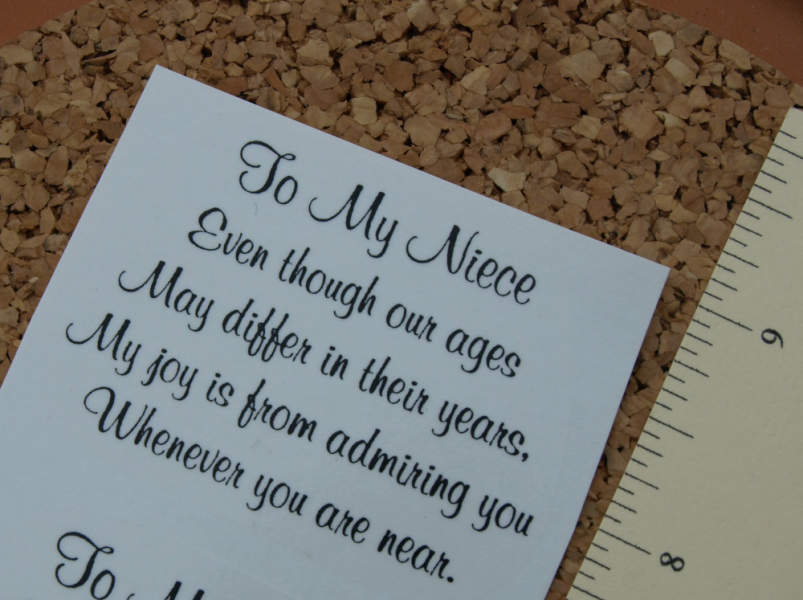 To My Niece
Even though our ages
May differ in their years,
My joy is from admiring you
Whenever you are near.
To
9
8